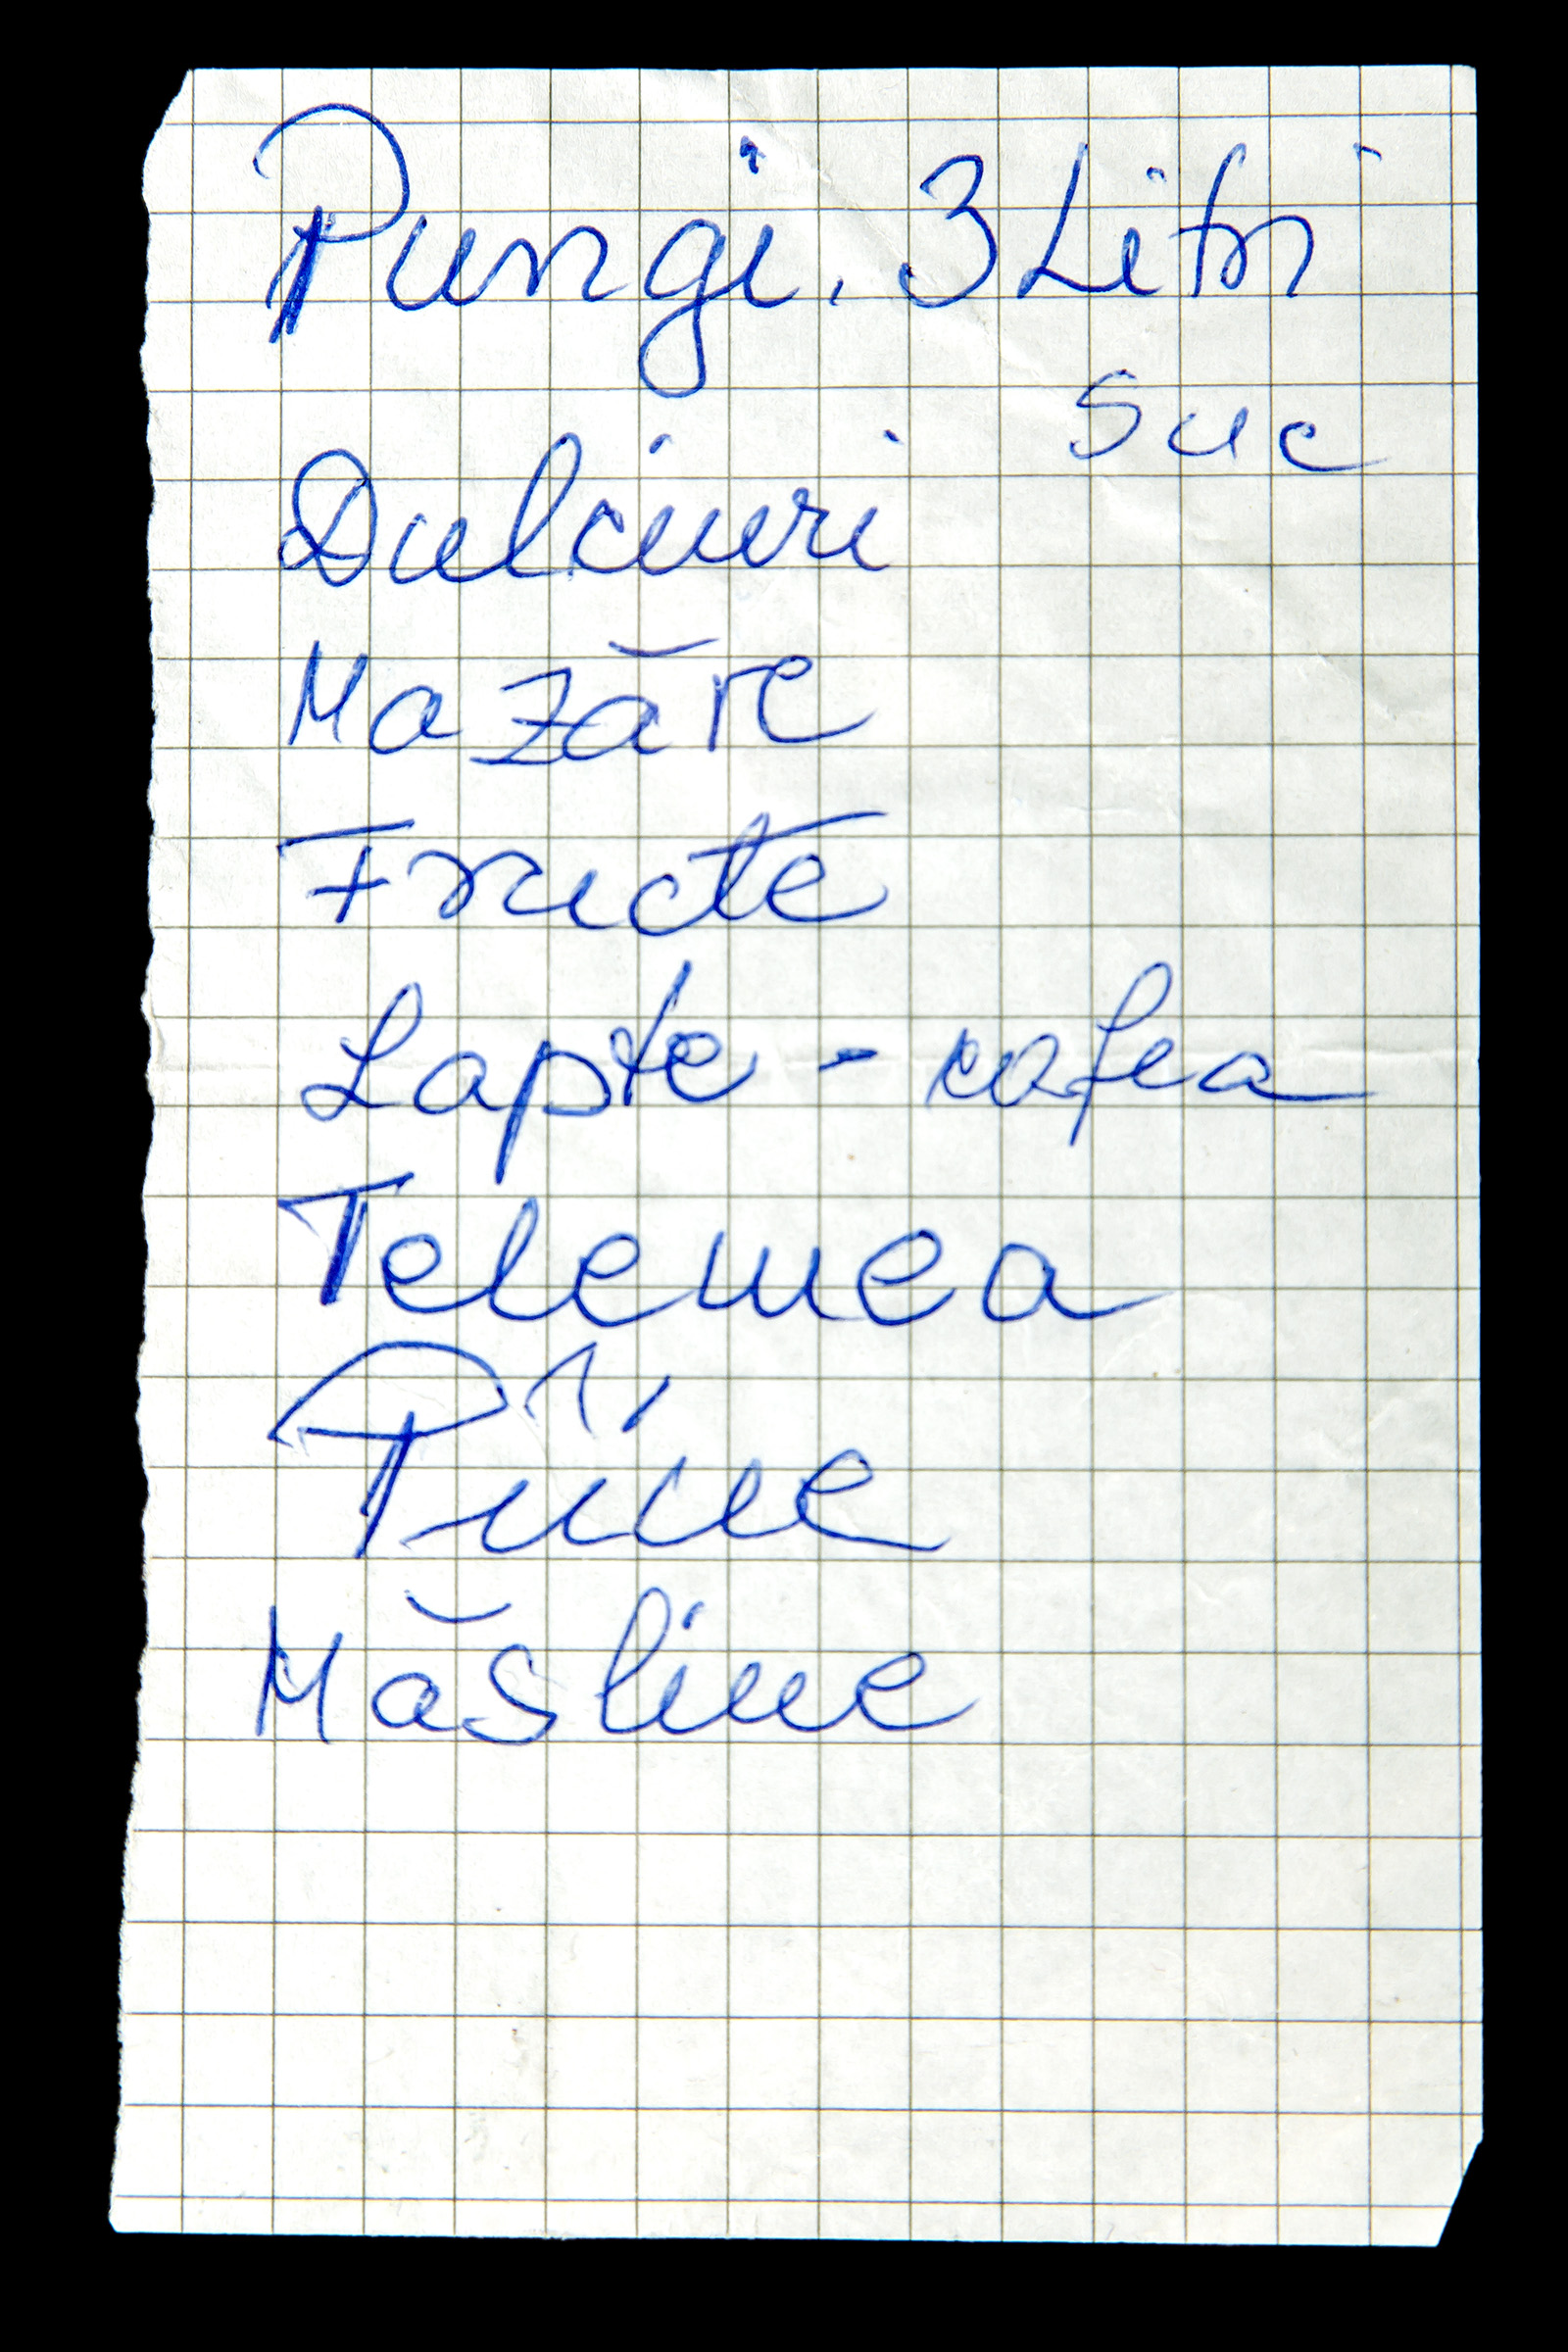 Pungi. 3 Litri
Suc
Dulciuri
Mazăre
Fructe
Lapte - cafea
Telemea
Pîine
Măsline